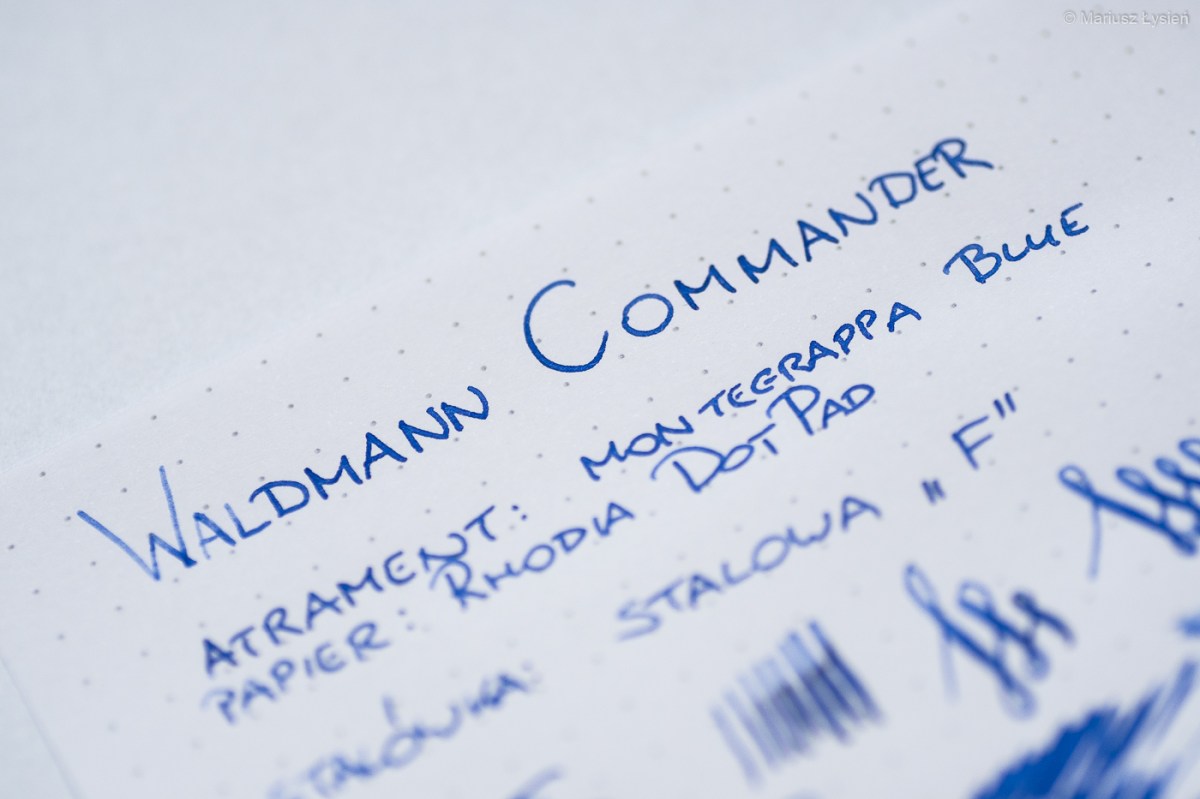 © Mariusz Łysień
WALDMANN COMMANDER
ATRAMENT: MONTEGRAPPA BLUE
PAPIER: RHODIA DOT PAD
STALÓWKA: STALOWA "F"